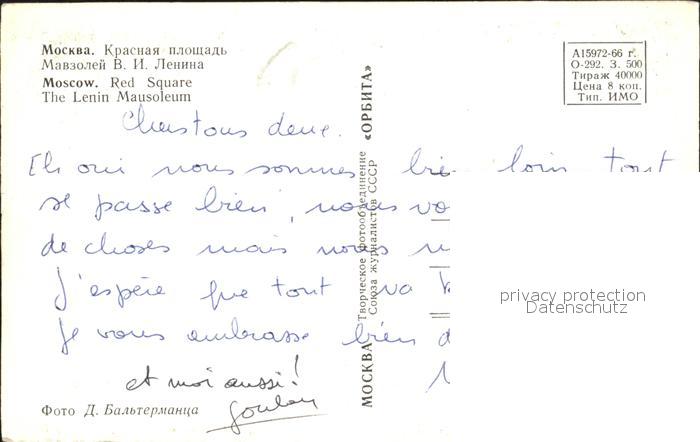 Москва. Красная площадь
Мавзолей В. И. Ленина
Moscow. Red Square
The Lenin Mausoleum
А15972-66 г.
О-292. З. 500
Тираж 40000
Цена 8 коп.
Тип. ИМО
МОСКВА «ОРБИТА»
Творческое фотообъединение
Союза журналистов СССР
Eh oui nous sommes loin tout
se passe bien, nous
de choses mais nous
J'espère que tout va
Je vous embrasse bien
et moi aussi!
Фото Д. Бальтерманца
privacy protection
Datenschutz